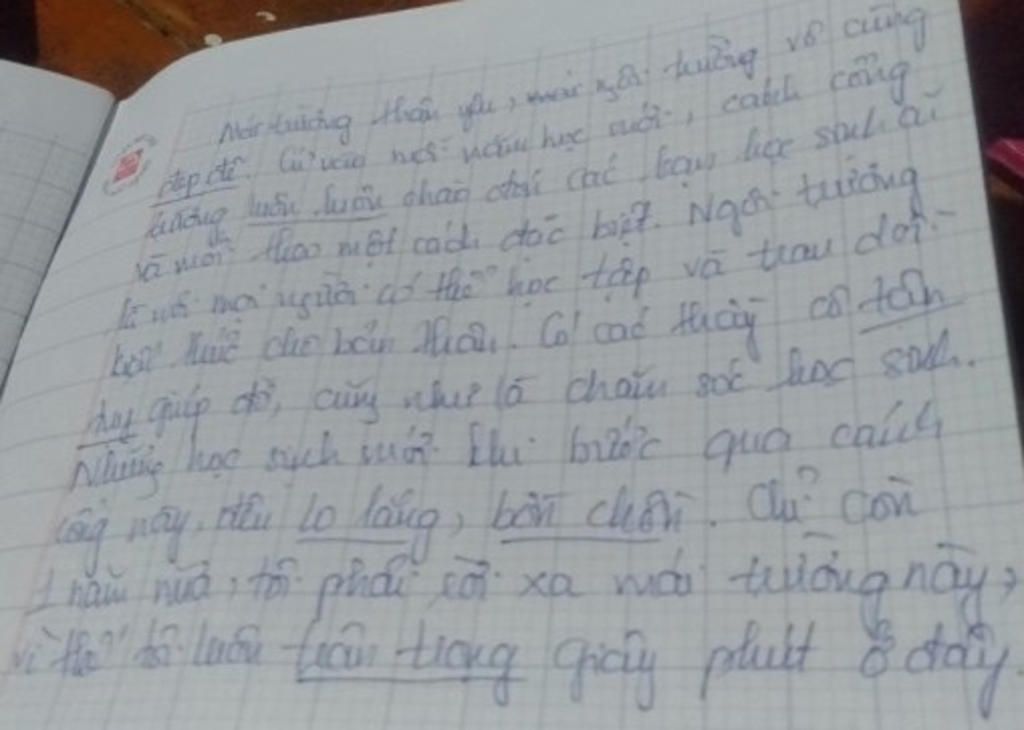 Mái trường thân yêu, mái ngôi trường vô cùng
đẹp đẽ. Cứ vào mỗi năm học mới, cánh cổng
trường luôn luôn chào đón các bạn học sinh cũ
và mới theo một cách đặc biệt. Ngôi trường
là nơi mọi người có thể học tập và trau dồi
kiến thức cho bản thân. Có các thầy cô tận
tuỵ giúp đỡ, cũng như là chăm sóc học sinh.
Những học sinh mới khi bước qua cánh
cổng này, đều lo lắng, bồn chồn. Chỉ còn
1 năm nữa, tôi phải rời xa mái trường này,
vì thế tôi luôn trân trọng giây phút ở đây.